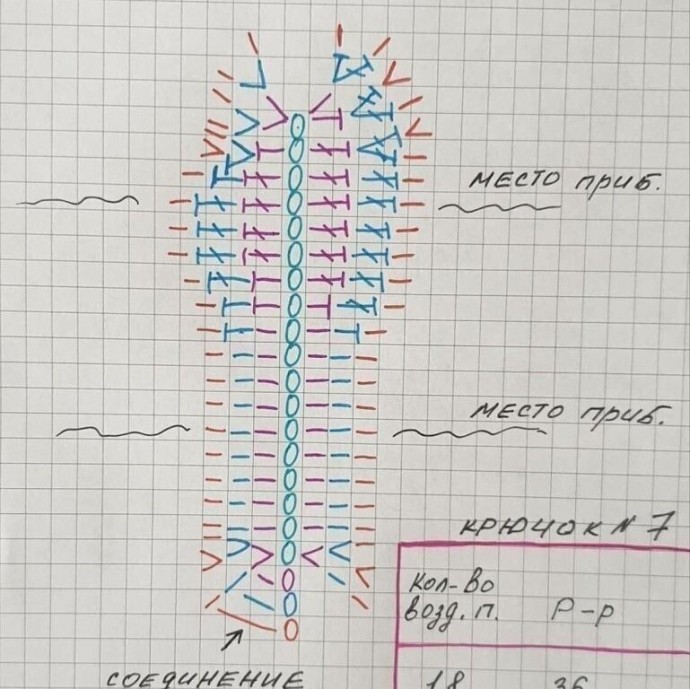 МЕСТО ПРИБ.
МЕСТО ПРИБ.
КРЮЧОК N 7
КОЛ-ВО
ВОЗД. П. Р-Р
18 36
СОЕДИНЕНИЕ